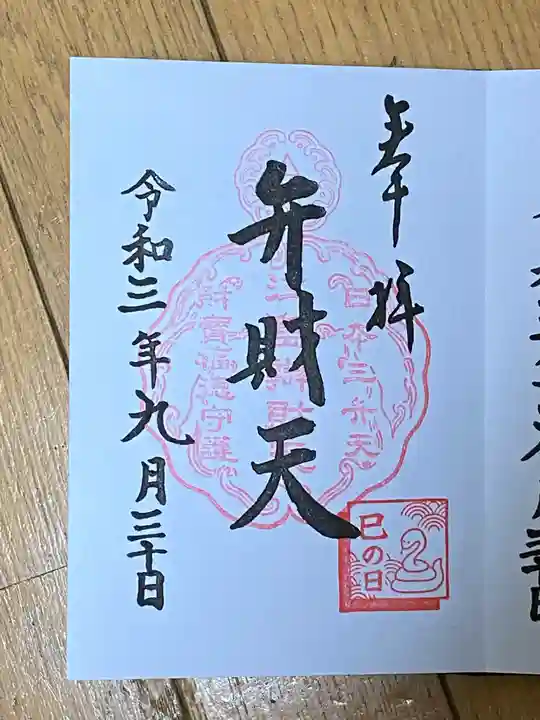 奉拝
日本三弁天
江島辨財天
財寳福徳守護
弁財天
巳の日
令和三年九月三十日